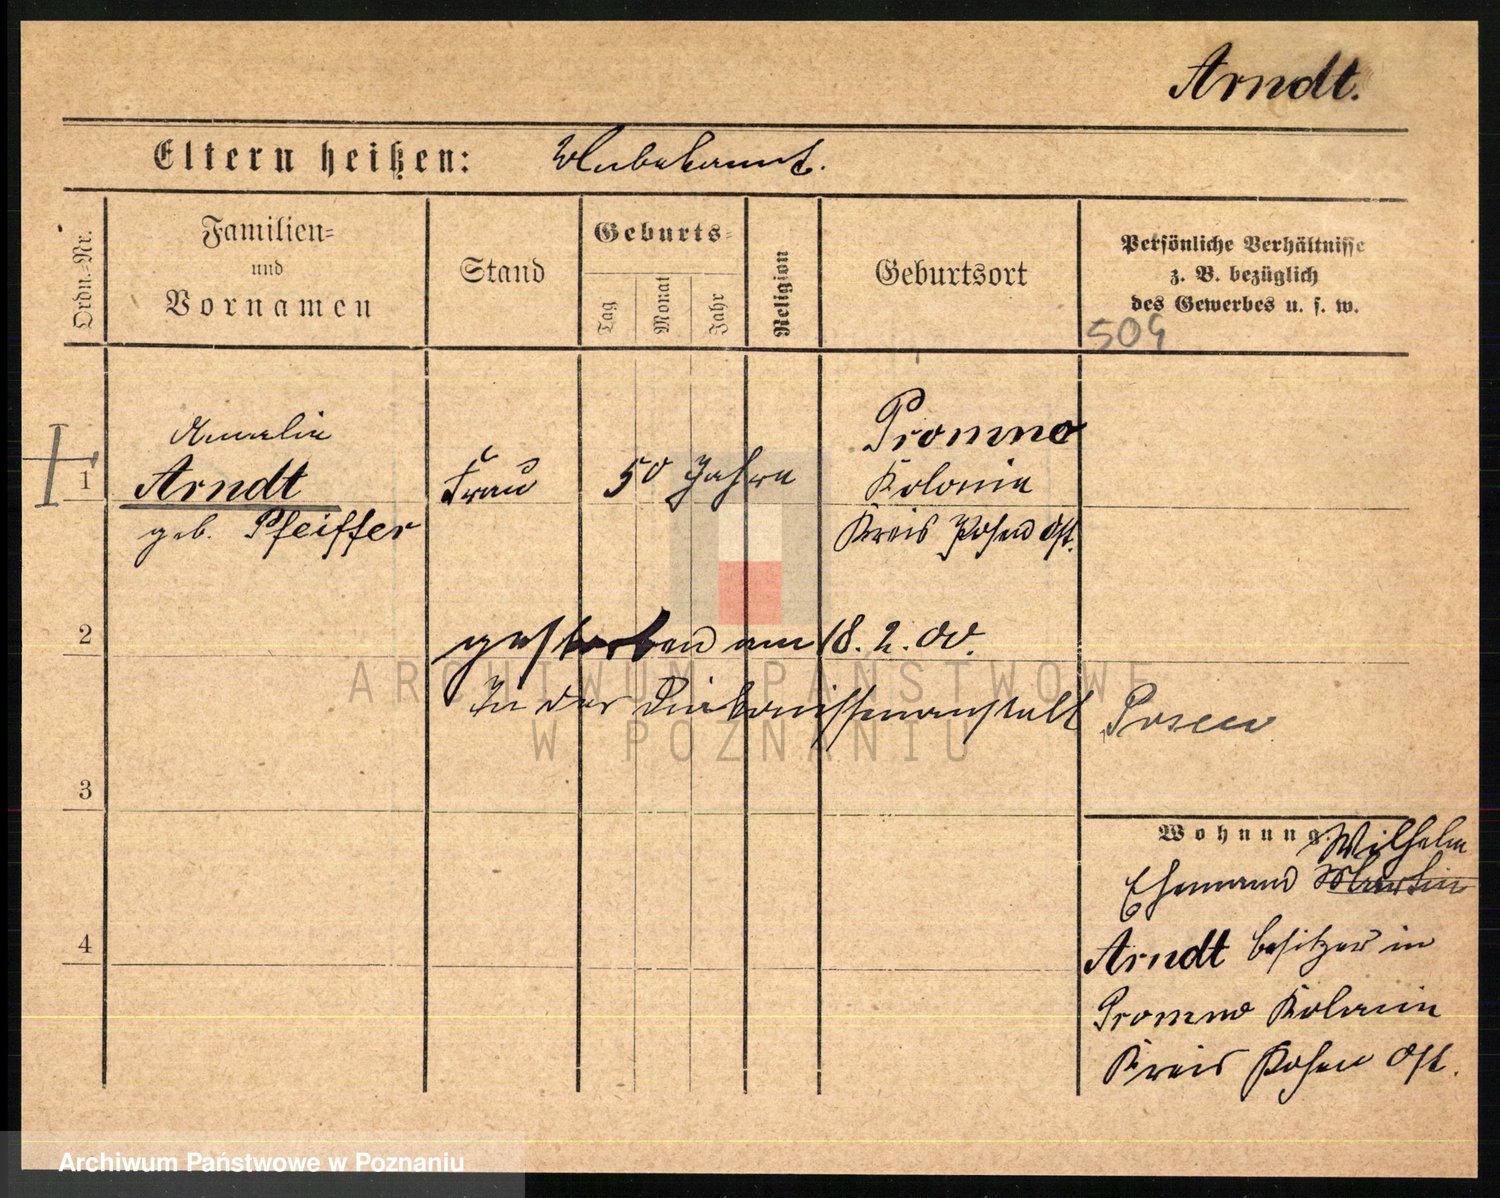 Arndt.
Eltern heißen: Unbekannt.
Ordn.-Nr.
Familien-
und
Vornamen
Stand
Geburts-
Tag
Monat
Jahr
Religion
Geburtsort
Persönliche Verhältnisse
z. B. bezüglich
des Gewerbes u. s. w.
509
1
Amalie
Arndt
geb. Pfeiffer
Frau
50 Jahre
Promno
Kolonie
Kreis Posen Ost.
2
gestorben am 18. 2. 00.
In der Diakonissenanstalt Posen
3
Wohnung.
Wilhelm
Ehemann Martin
4
Arndt besitzer in
Promno Kolonie
Kreis Posen Ost.
ARCHIWUM PAŃSTWOWE
W POZNANIU
Archiwum Państwowe w Poznaniu